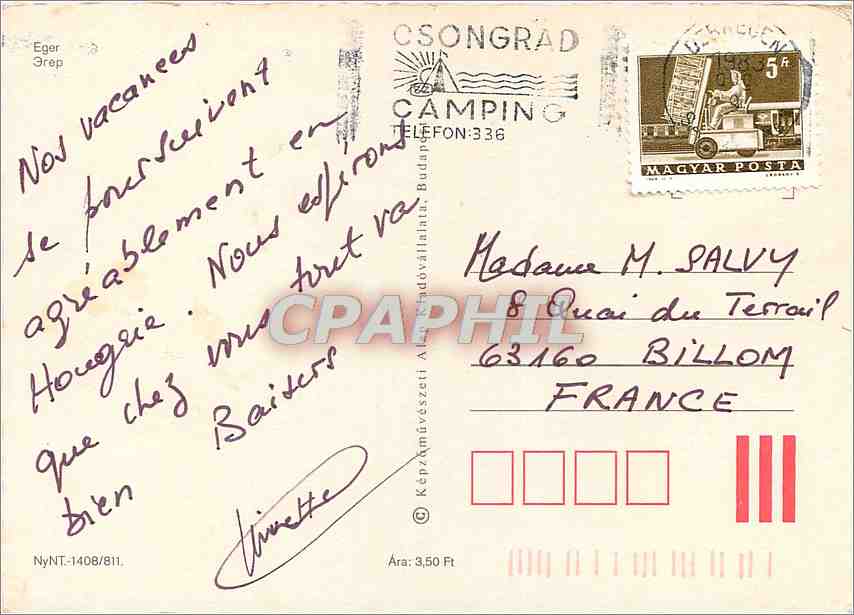 Eger
Эгер
CSONGRÁD
CAMPING
TELEFON:336
DEBRECEN
5 Ft
MAGYAR POSTA
Nos vacances
se poursuivent
agréablement en
Hongrie. Nous espérons
que chez vous tout va
bien Baisers
Madame M. SALVY
8 Quai du Terrail
63160 BILLOM
FRANCE
CPAPHIL
© Képzőművészeti Alap Kiadóvállalata, Budapest
NyNT.-1408/811.
Ára: 3,50 Ft